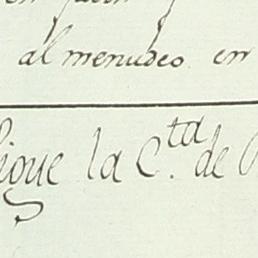 al menudeo en
Sigue la C.ta de